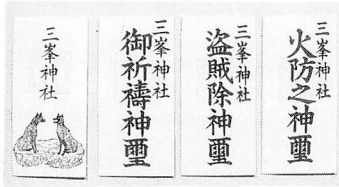 三峯神社
火防之神璽
三峯神社
盗賊除神璽
三峯神社
御祈禱神璽
三峯神社